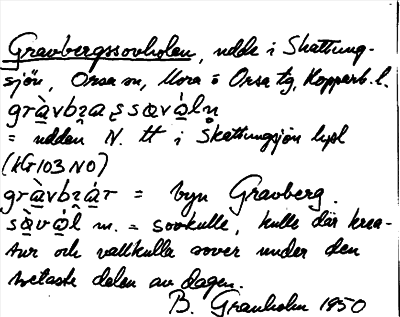 Gravbergssovholen, udde i Skattung-
sjön, Orsa sn, Mora o Orsa tg, Kopparb. l.
= udden N. H i Skattungsjön
(KG103 NO)
= byn Gravberg.
m. = sovkulle, kulle där krea-
tur och vallkulla sover under den
hetaste delen av dagen.
B. Granholm 1950